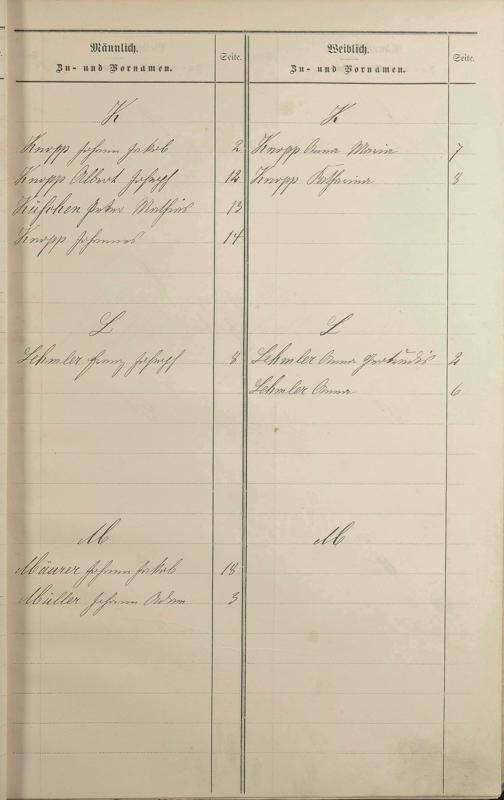 Männlich.
Zu- und Vornamen.
Seite.
K
Knopp Johann Jakob 2
Knopp Albert Joseph 12
Küfchen Peter Mathias 13
Knopp Johannes 14
L
Lehmler Franz Joseph 8
M
Mäurer Johann Jakob 18
Müller Johann Adam 3
Weiblich.
Zu- und Vornamen.
Seite.
K
Knopp Anna Maria 7
Knopp Katharina 8
L
Lehmler Anna Gertrudis 2
Lehmler Anna 6
M